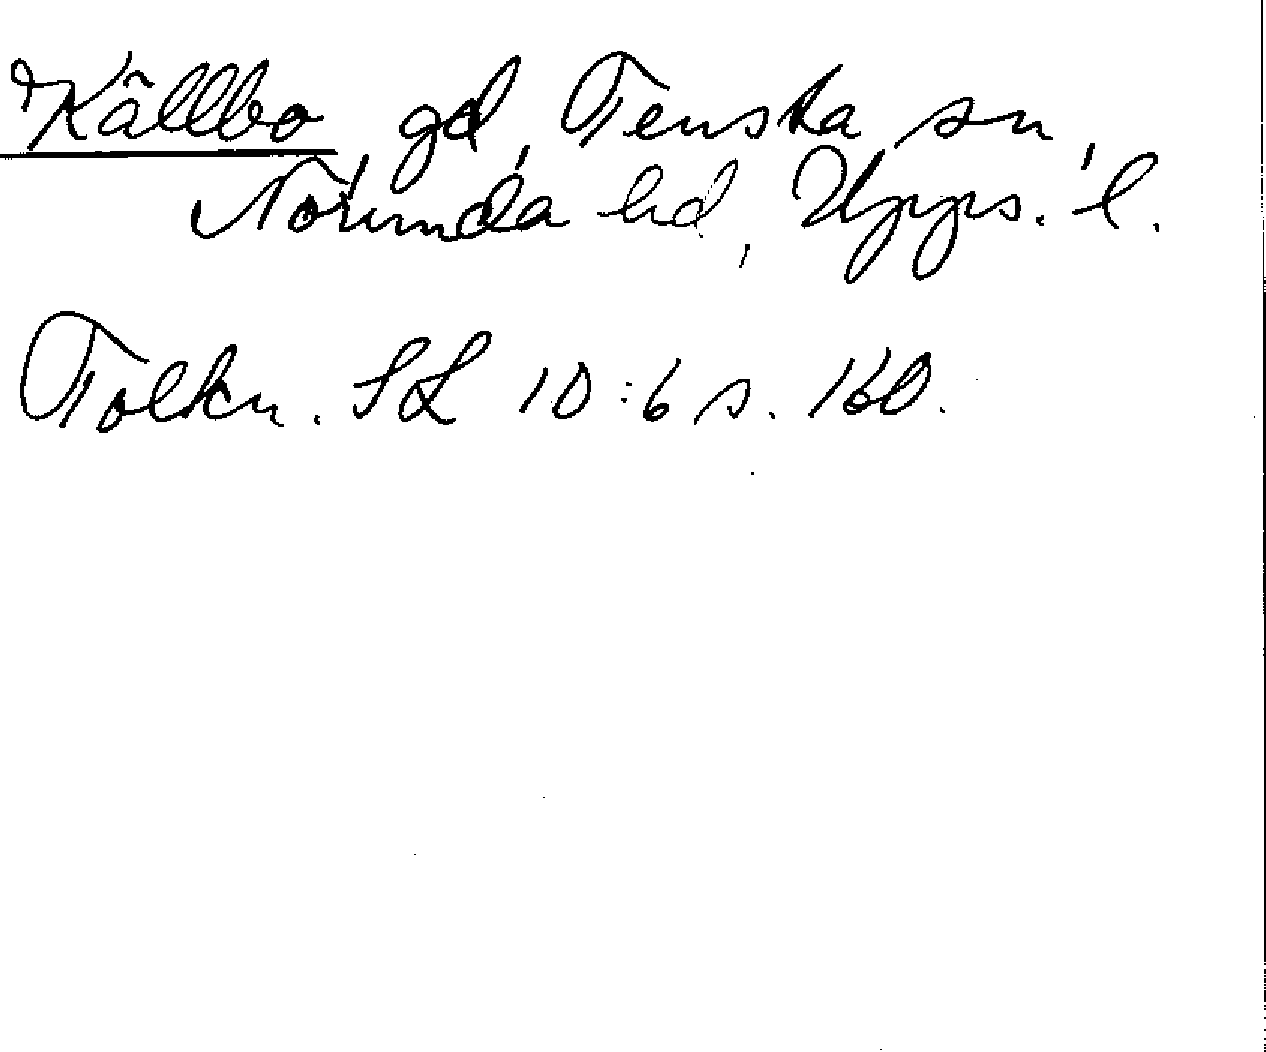 Källbo gd, Tensta sn,
Norunda hd, Upps. l.
Tolkn. SL 10:6 s. 160.